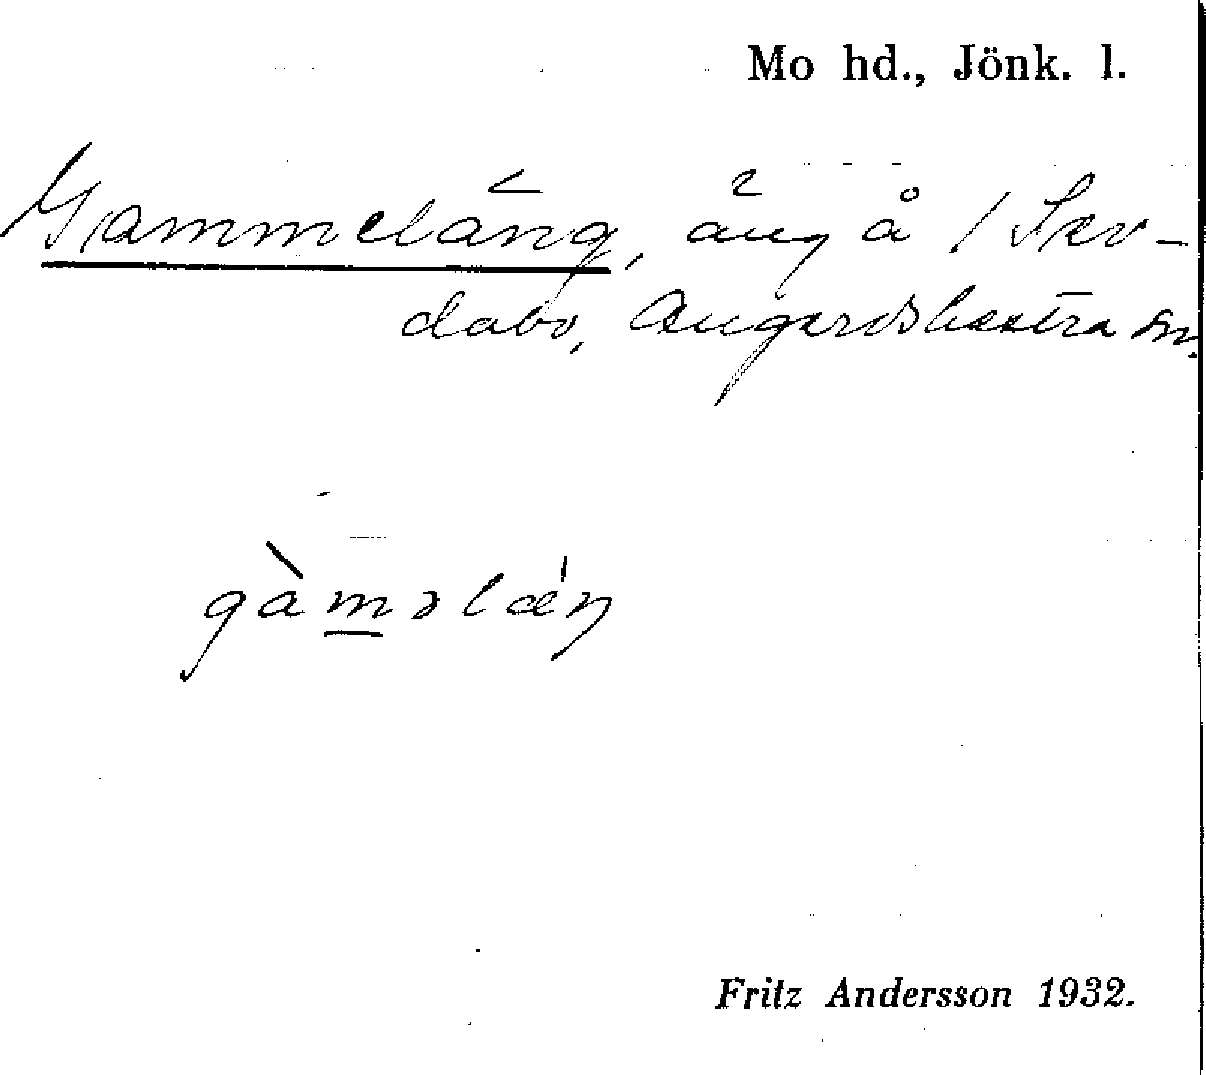 Mo hd., Jönk. l.
Gammeläng, äng å 1 Sev-
dabo, Angerdshestra sn.
gàməlǽŋ
Fritz Andersson 1932.